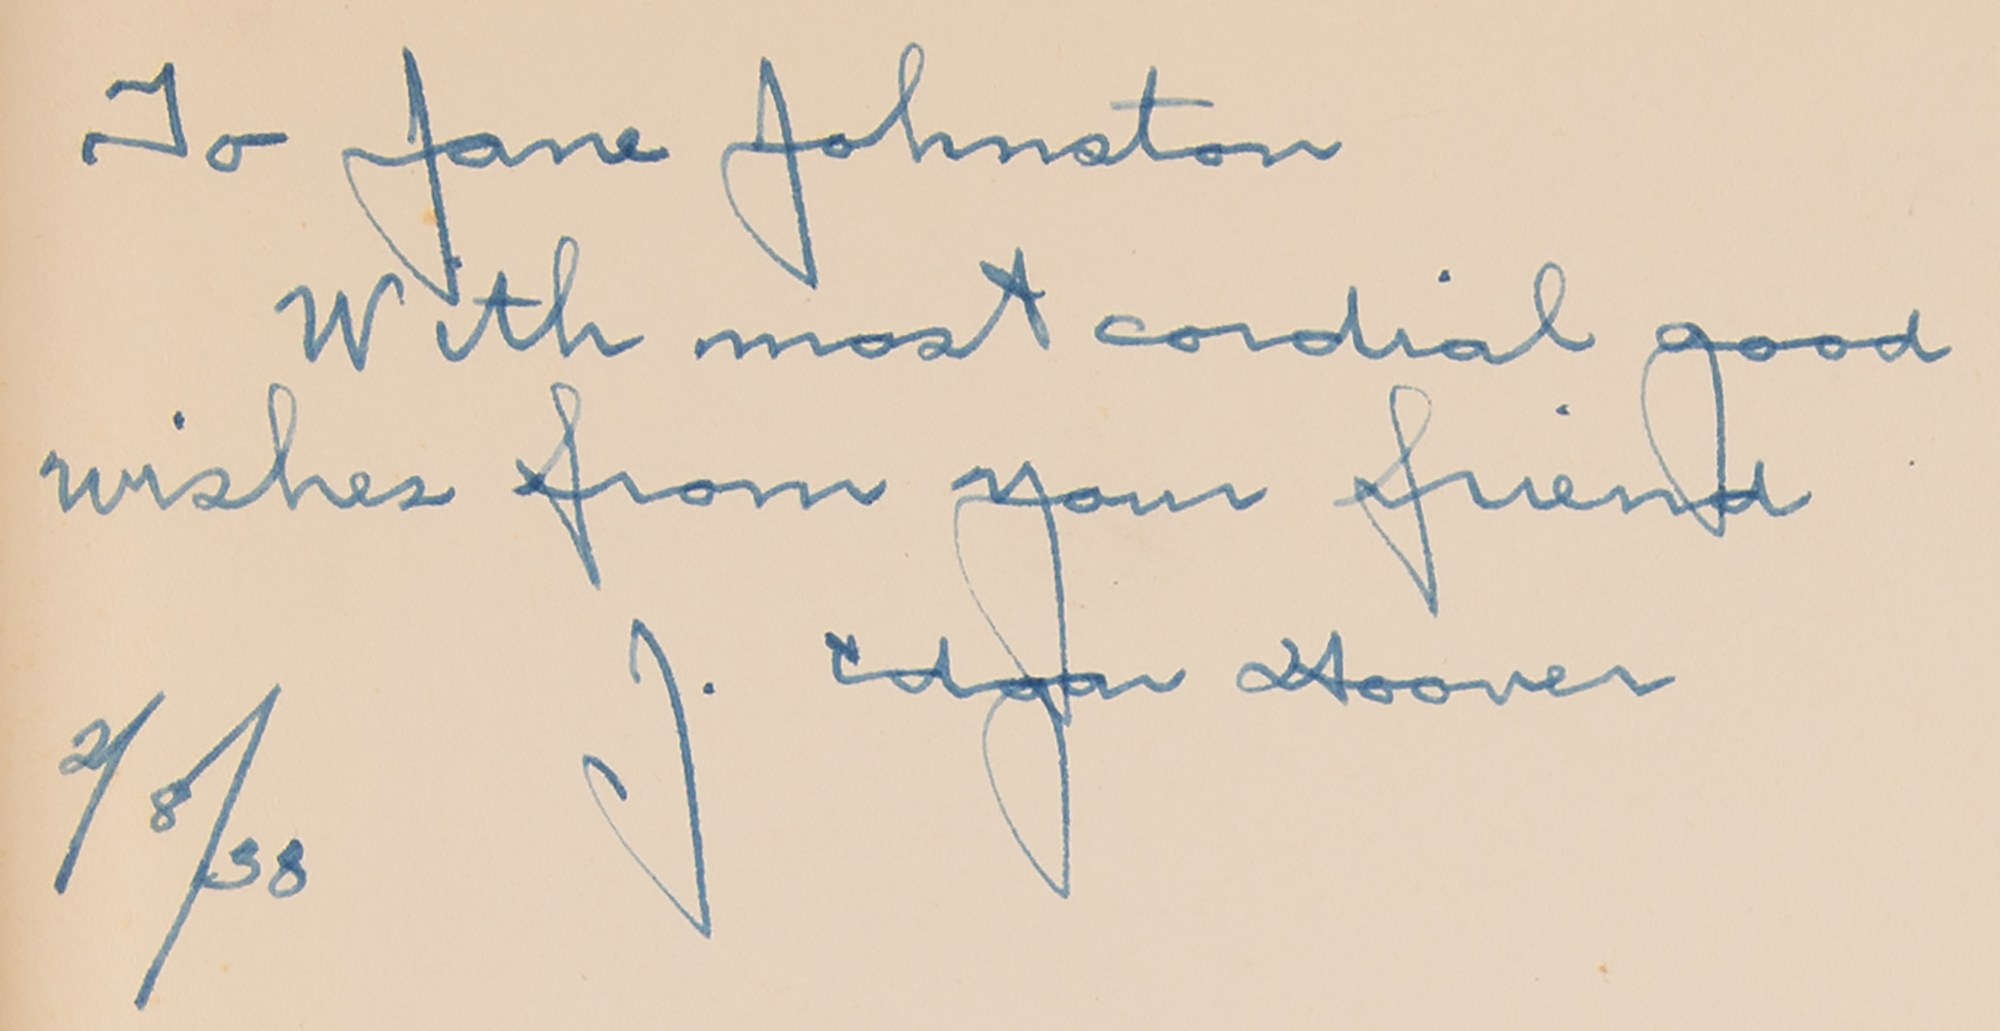 To Jane Johnston
With most cordial good
wishes from your friend
J. Edgar Hoover
2/8/38